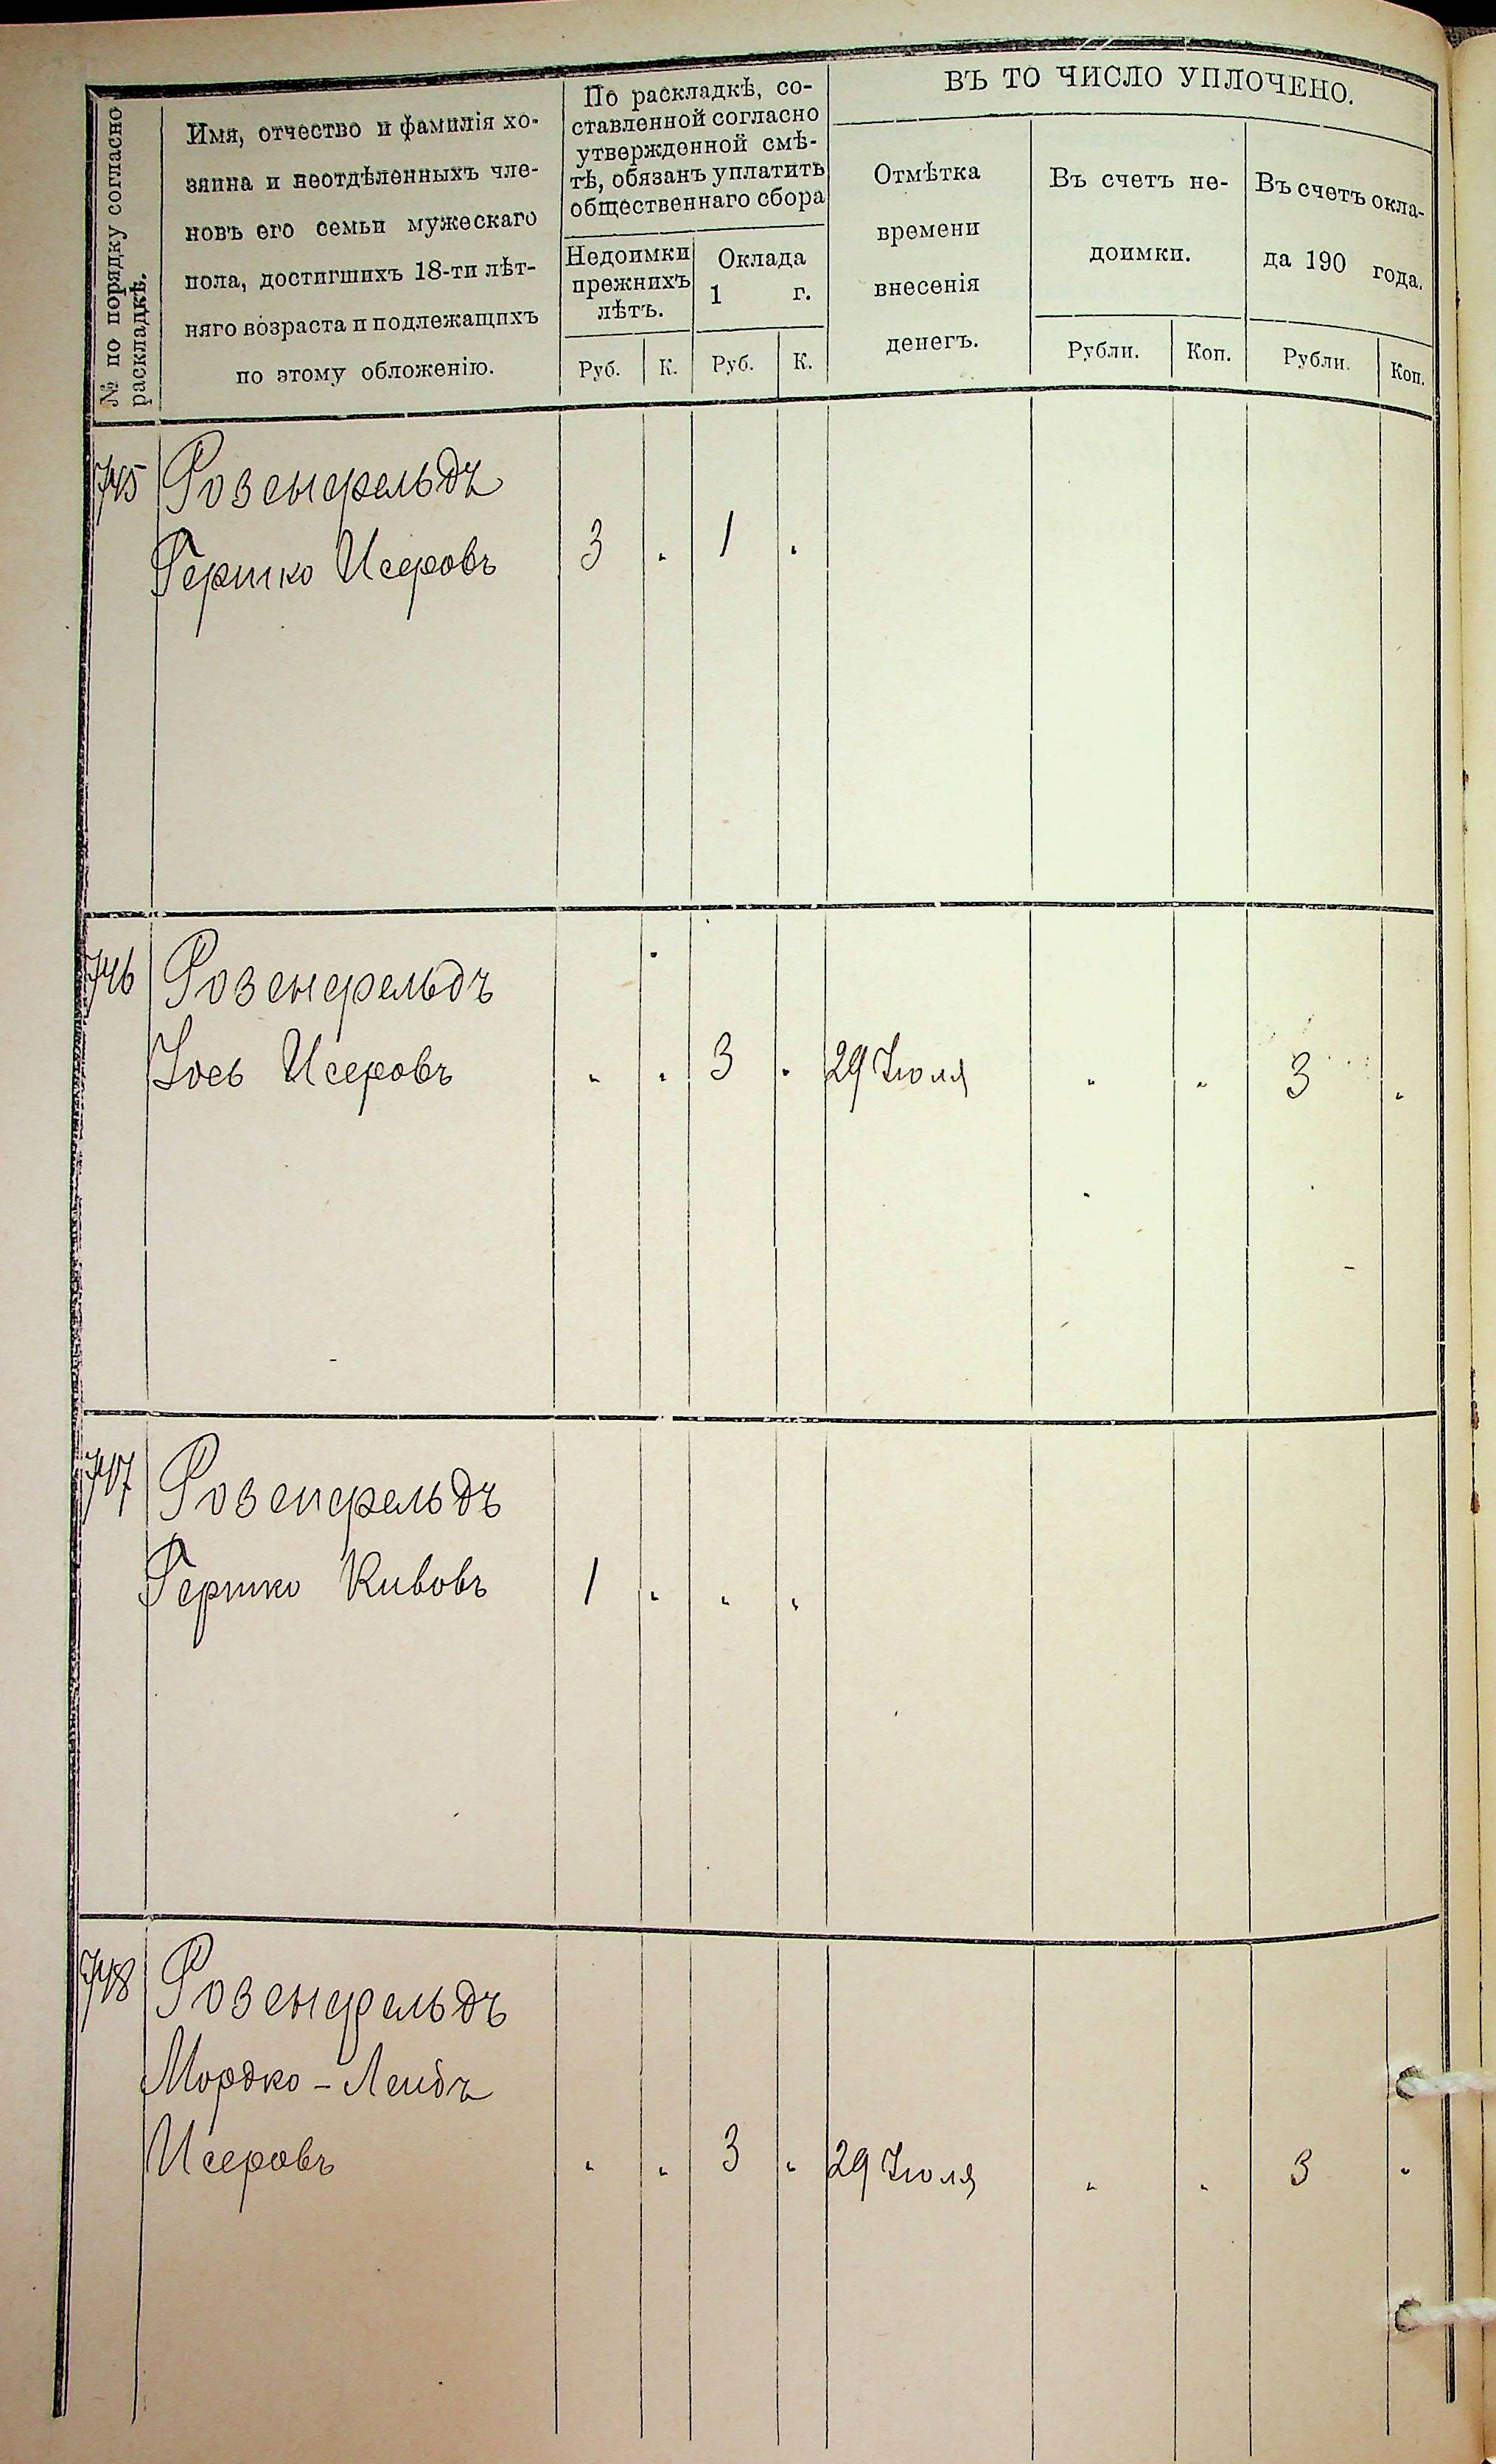 № по порядку согласно
раскладкѣ.
Имя, отчество и фамилія хо-
зяина и неотдѣленныхъ чле-
новъ его семьи мужескаго
пола, достигшихъ 18-ти лѣт-
няго возраста и подлежащихъ
по этому обложенію.
По раскладкѣ, со-
ставленной согласно
утвержденной смѣ-
тѣ, обязанъ уплатить
общественнаго сбора
Недоимки
прежнихъ
лѣтъ.
Оклада
1 г.
Руб. К. Руб. К.
ВЪ ТО ЧИСЛО УПЛОЧЕНО.
Отмѣтка
времени
внесенія
денегъ.
Въ счетъ не-
доимки.
Рубли. Коп.
Въ счетъ окла-
да 190 года.
Рубли. Коп.
745 Розенфельдъ
Гершко Исеровъ 3 „ 1 „
746 Розенфельдъ
Іось Исеровъ „ „ 3 „ 29 Іюля „ „ 3 „
747 Розенфельдъ
Гершко Кивовъ 1 „ „ „
748 Розенфельдъ
Мордко-Лейбъ
Исеровъ „ „ 3 „ 29 Іюля „ „ 3 „